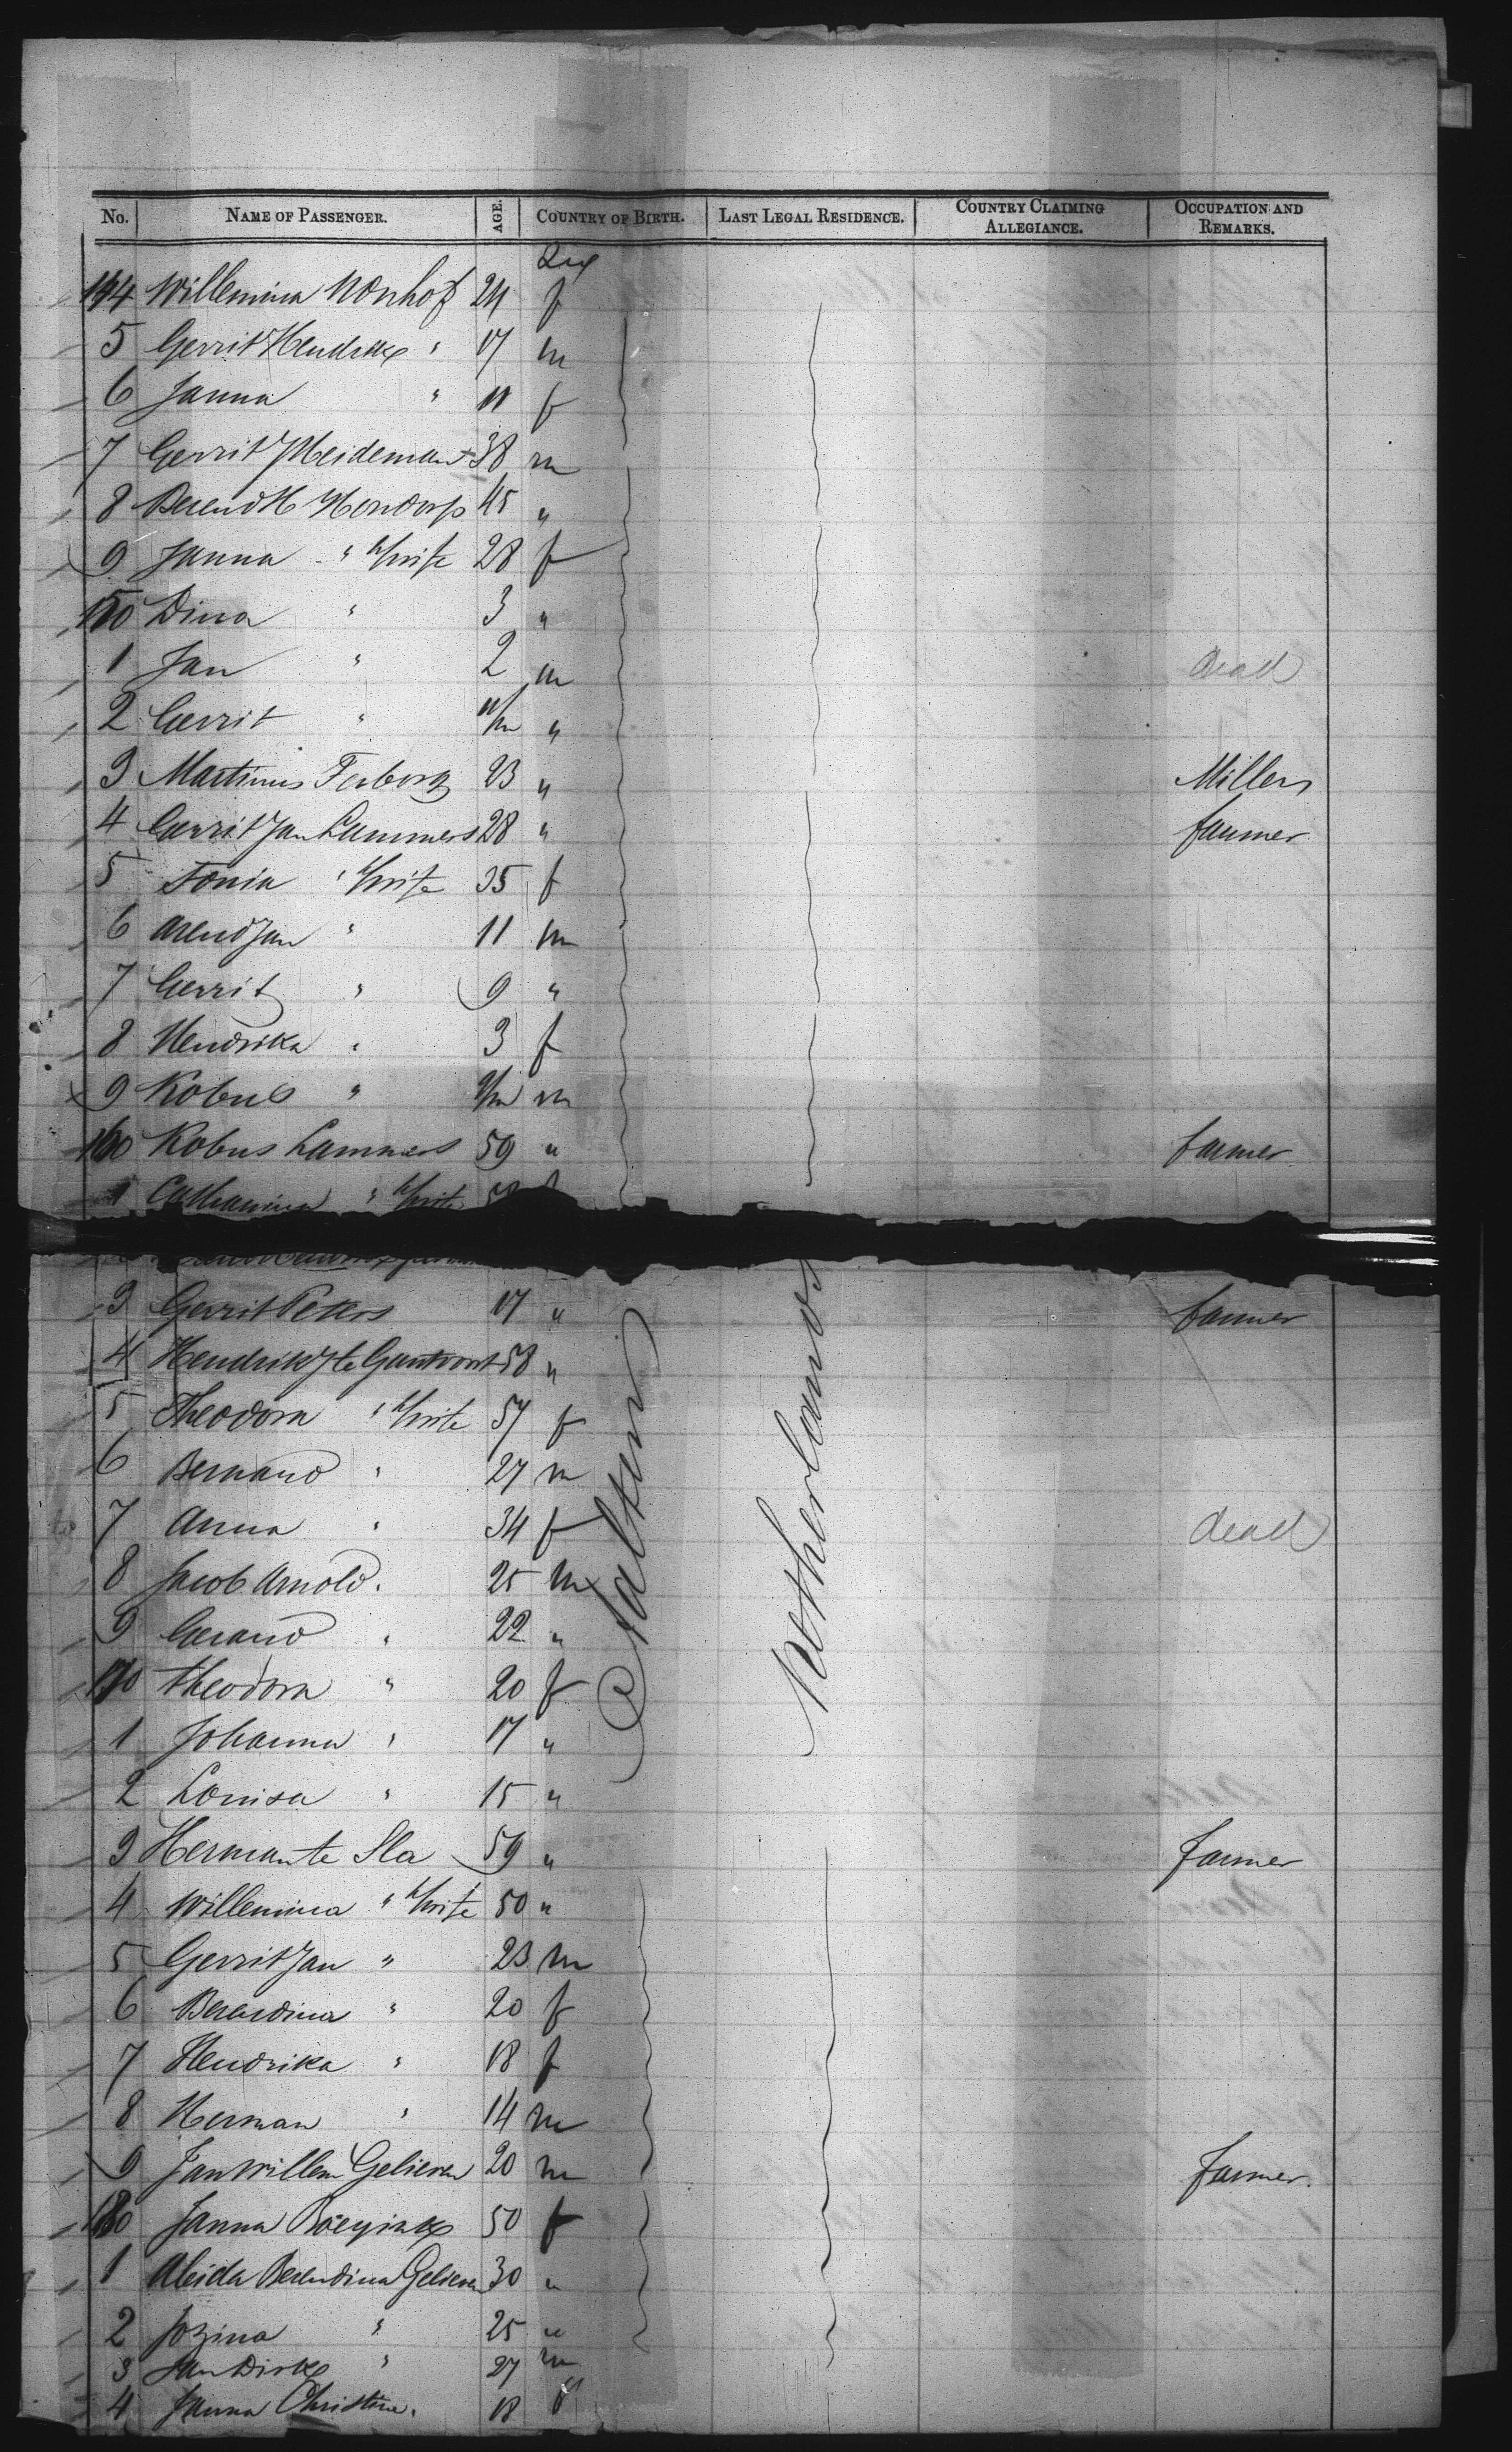 No. NAME OF PASSENGER. AGE. COUNTRY OF BIRTH. LAST LEGAL RESIDENCE. COUNTRY CLAIMING ALLEGIANCE. OCCUPATION AND REMARKS.
Sex
144 Willemina Wonhof 24 f
5 Gerrit Hendrik " 17 m
6 Janna " 11 f
7 Gerrit J Heideman 38 m
8 Berend H 45 "
9 Janna " h/wife 28 f
150 Dina " 3 "
1 Jan " 2 m dead
2 Gerrit " 11/m "
3 Martinus Terborg 23 " Miller
4 Gerrit Jan Lammers 28 " farmer
5 Tonia " h/wife 35 f
6 Arend Jan " 11 m
7 Gerrit " 9 "
8 Hendrika " 3 f
9 Kobus " m
160 Kobus Lammers 59 " farmer
1 Catharina " h/wife
3 Gerrit Peters 17 " farmer
4 Hendrik J te Gantvoort 58 "
5 Theodora " h/wife 57 f
6 Bernard " 27 m
7 Anna " 34 f dead
8 Jacob Arnold " 25 m
9 Gerard " 22 "
170 Theodora " 20 f
1 Johanna " 17 "
2 Louisa " 15 "
Aalten
Netherlands
3 Herman te Sla 59 " farmer
4 Willemina " h/wife 50 "
5 Gerrit Jan " 23 m
6 Berendina " 20 f
7 Hendrika " 18 f
8 Herman " 14 m
9 Jan Willem Gelieven 20 m farmer
180 Janna 50 f
1 Aleida Berendina Gelieven 30 "
2 Jozina " 25 "
3 Jan Dirk " 27 m
4 Janna Christine " 18 f